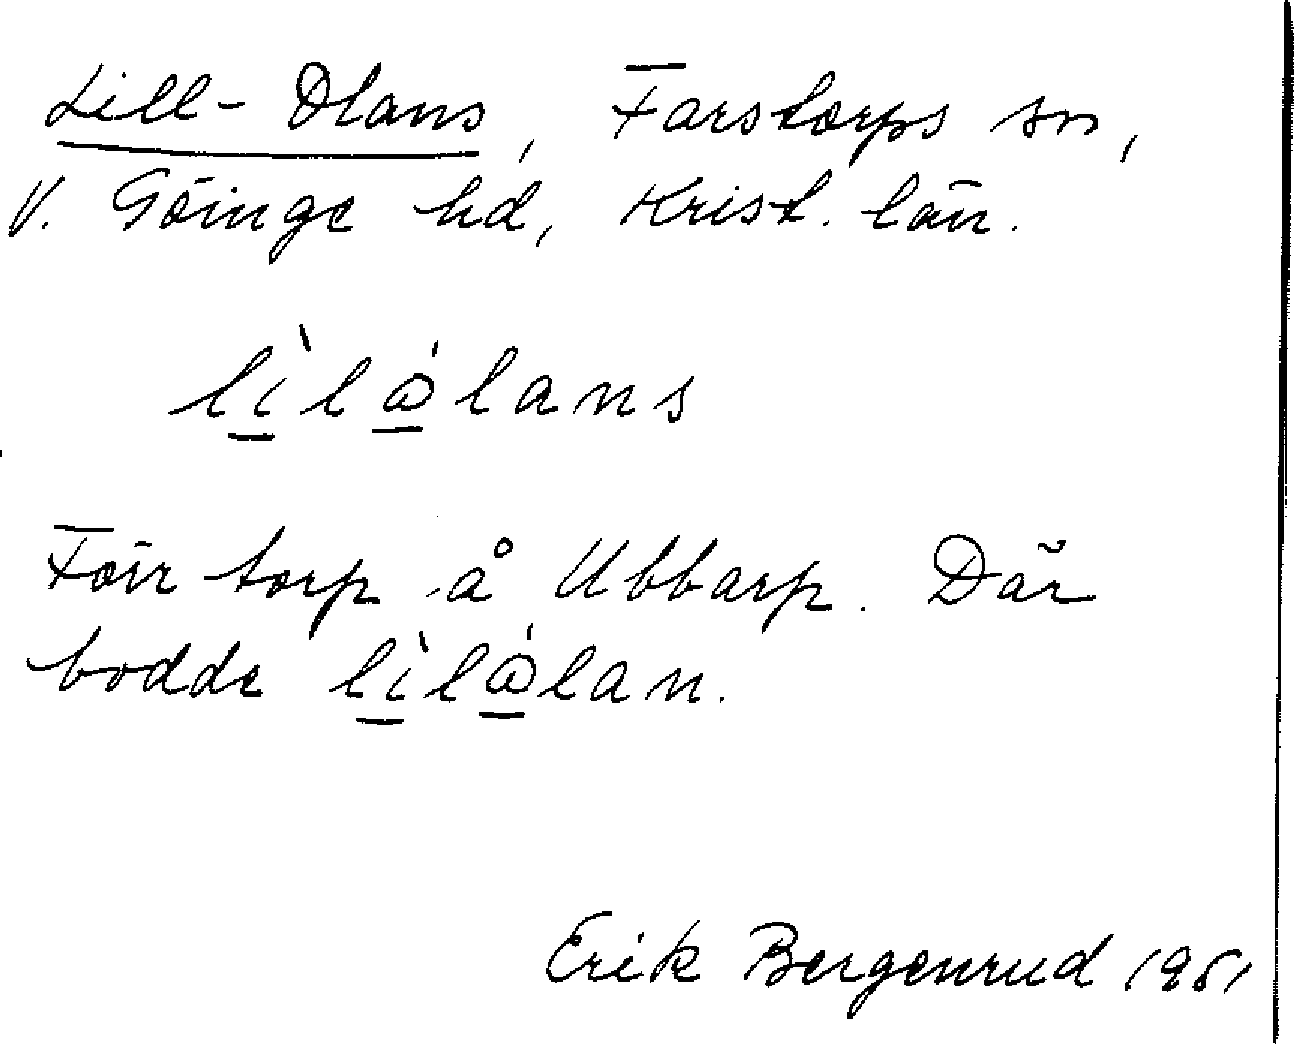 Lill-Olans, Farstorps sn,
V. Göinge hd, Krist. län.
lìlålans
Förr torp å Ubbarp. Där
bodde lìlålan.
Erik Bergenrud